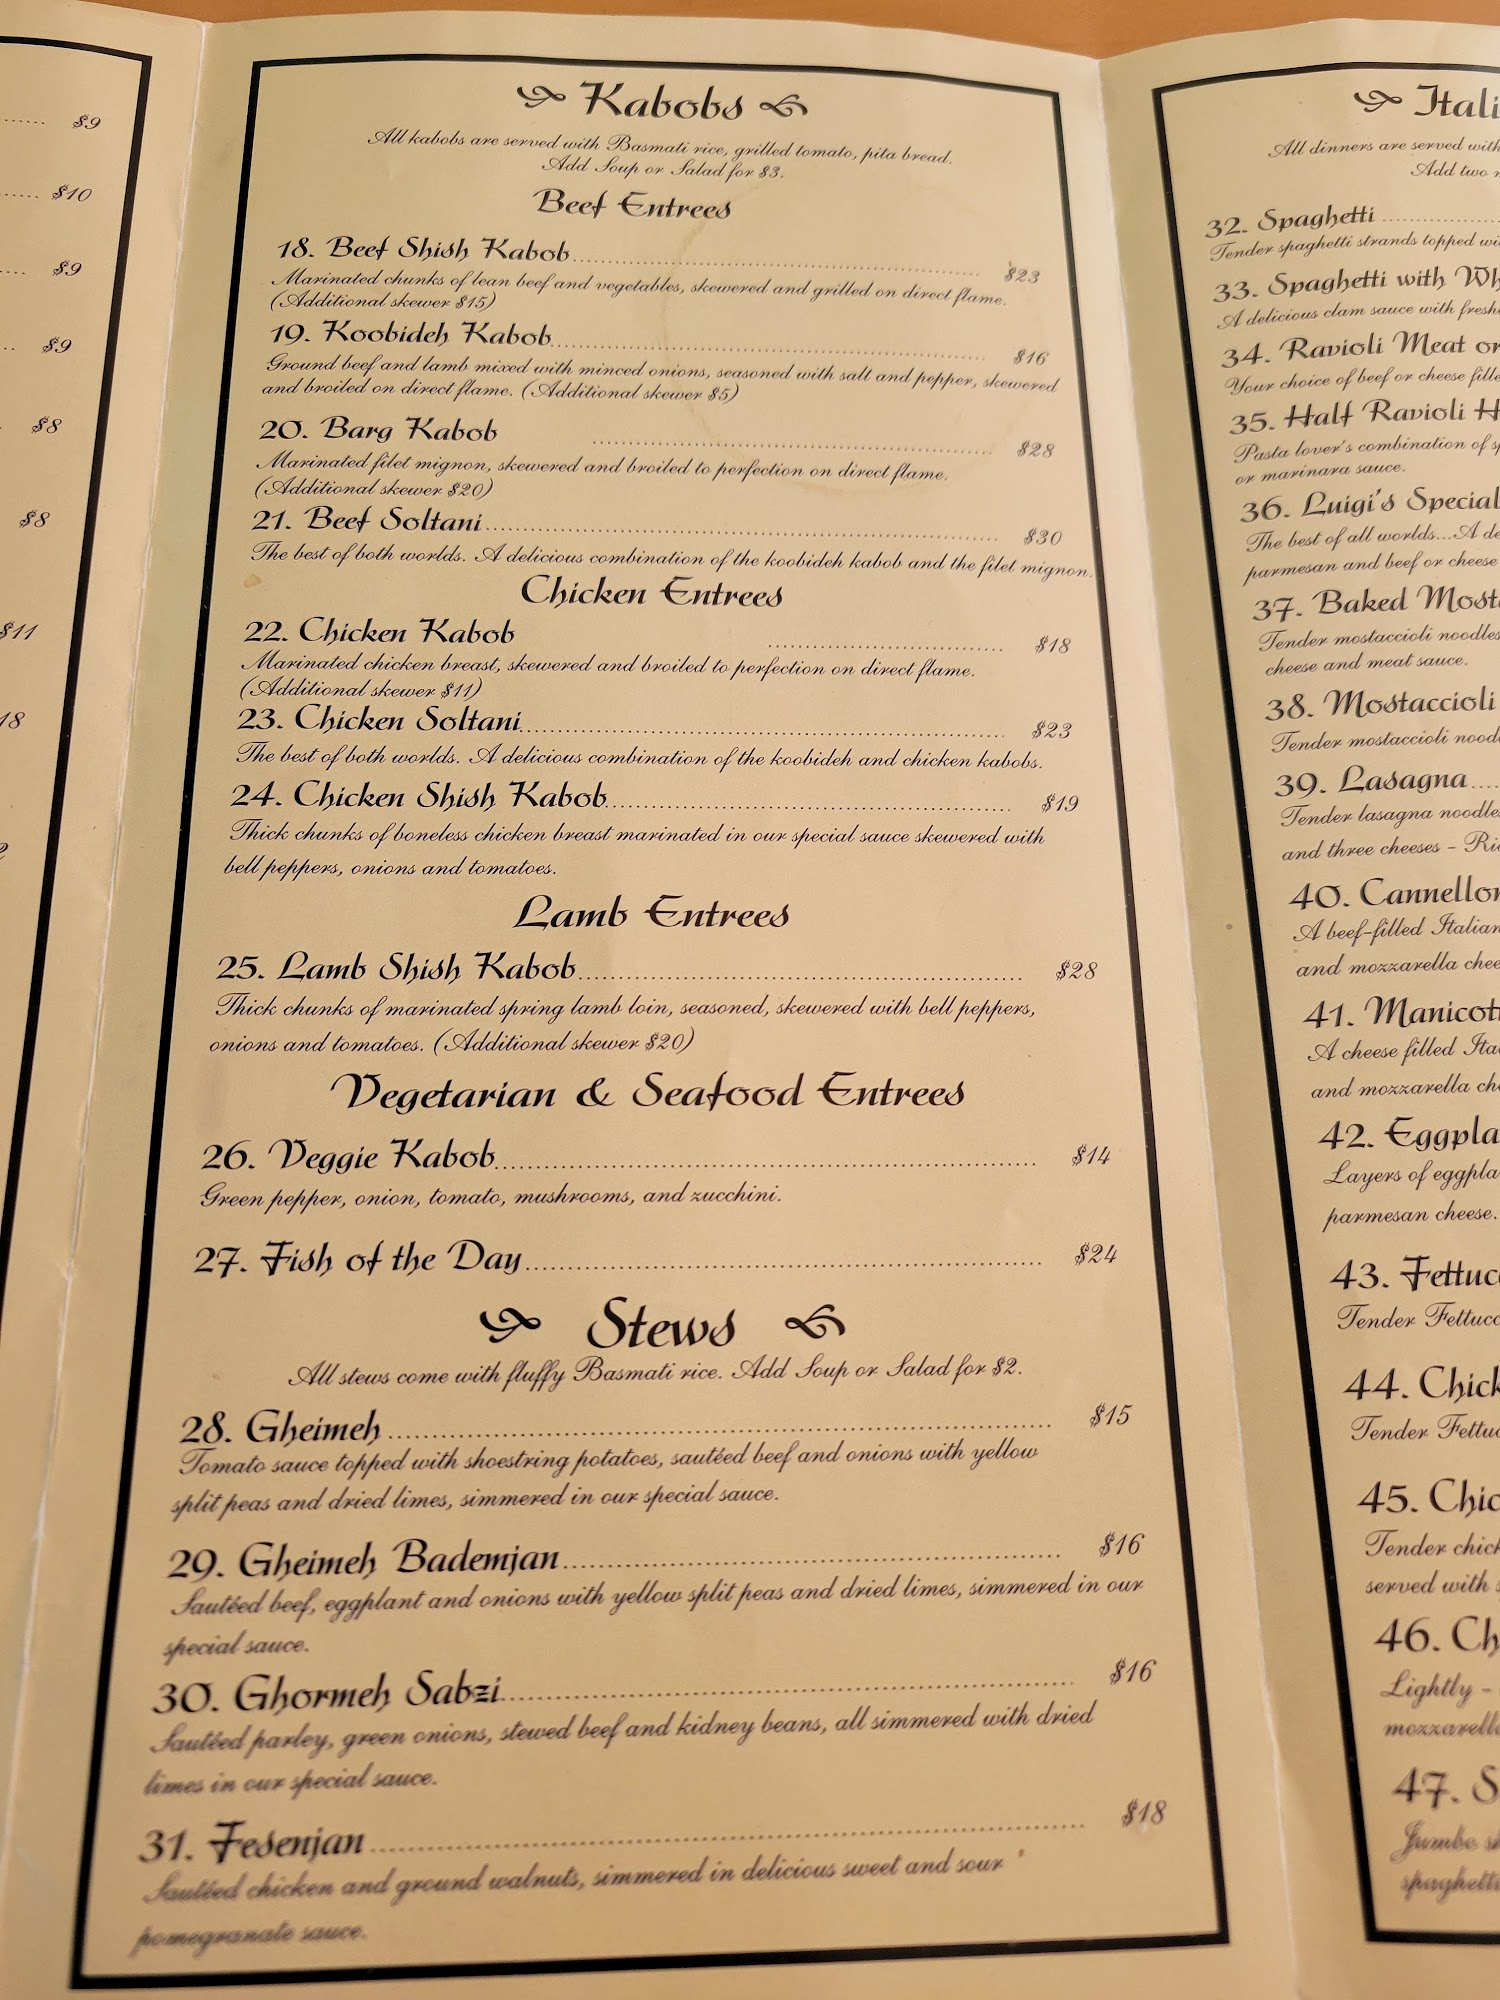 $9
$10
$9
$9
$8
$8
$11
18
2
Kabobs
All kabobs are served with Basmati rice, grilled tomato, pita bread.
Add Soup or Salad for $3.
Beef Entrees
18. Beef Shish Kabob........ $23
Marinated chunks of lean beef and vegetables, skewered and grilled on direct flame.
(Additional skewer $15)
19. Koobideh Kabob........ $16
Ground beef and lamb mixed with minced onions, seasoned with salt and pepper, skewered
and broiled on direct flame. (Additional skewer $5)
20. Barg Kabob ........ $28
Marinated filet mignon, skewered and broiled to perfection on direct flame.
(Additional skewer $20)
21. Beef Soltani........ $30
The best of both worlds. A delicious combination of the koobideh kabob and the filet mignon.
Chicken Entrees
22. Chicken Kabob ........ $18
Marinated chicken breast, skewered and broiled to perfection on direct flame.
(Additional skewer $11)
23. Chicken Soltani........ $23
The best of both worlds. A delicious combination of the koobideh and chicken kabobs.
24. Chicken Shish Kabob........ $19
Thick chunks of boneless chicken breast marinated in our special sauce skewered with
bell peppers, onions and tomatoes.
Lamb Entrees
25. Lamb Shish Kabob........ $28
Thick chunks of marinated spring lamb loin, seasoned, skewered with bell peppers,
onions and tomatoes. (Additional skewer $20)
Vegetarian & Seafood Entrees
26. Veggie Kabob........ $14
Green pepper, onion, tomato, mushrooms, and zucchini.
27. Fish of the Day........ $24
Stews
All stews come with fluffy Basmati rice. Add Soup or Salad for $2.
28. Gheimeh........ $15
Tomato sauce topped with shoestring potatoes, sautéed beef and onions with yellow
split peas and dried limes, simmered in our special sauce.
29. Gheimeh Bademjan........ $16
Sautéed beef, eggplant and onions with yellow split peas and dried limes, simmered in our
special sauce.
30. Ghormeh Sabzi........ $16
Sautéed parley, green onions, stewed beef and kidney beans, all simmered with dried
limes in our special sauce.
31. Fesenjan........ $18
Sautéed chicken and ground walnuts, simmered in delicious sweet and sour
pomegranate sauce.
Itali
All dinners are served with
Add two
32. Spaghetti ........
Tender spaghetti strands topped
33. Spaghetti with Wh
A delicious clam sauce with fresh
34. Ravioli Meat or
Your choice of beef or cheese fille
35. Half Ravioli H
Pasta lover's combination of
or marinara sauce.
36. Luigi's Special
The best of all worlds...A de
parmesan and beef or cheese
37. Baked Mosta
Tender mostaccioli noodles
cheese and meat sauce.
38. Mostaccioli
Tender mostaccioli noodl
39. Lasagna....
Tender lasagna noodles
and three cheeses - Ric
40. Cannellon
A beef-filled Italian
and mozzarella chee
41. Manicott
A cheese filled Ita
and mozzarella che
42. Eggpla
Layers of eggpla
parmesan cheese.
43. Fettuc
Tender Fettucc
44. Chick
Tender Fettuc
45. Chic
Tender chick
served with
46. Ch
Lightly -
mozzarella
47. S
Jumbo
spaghetti